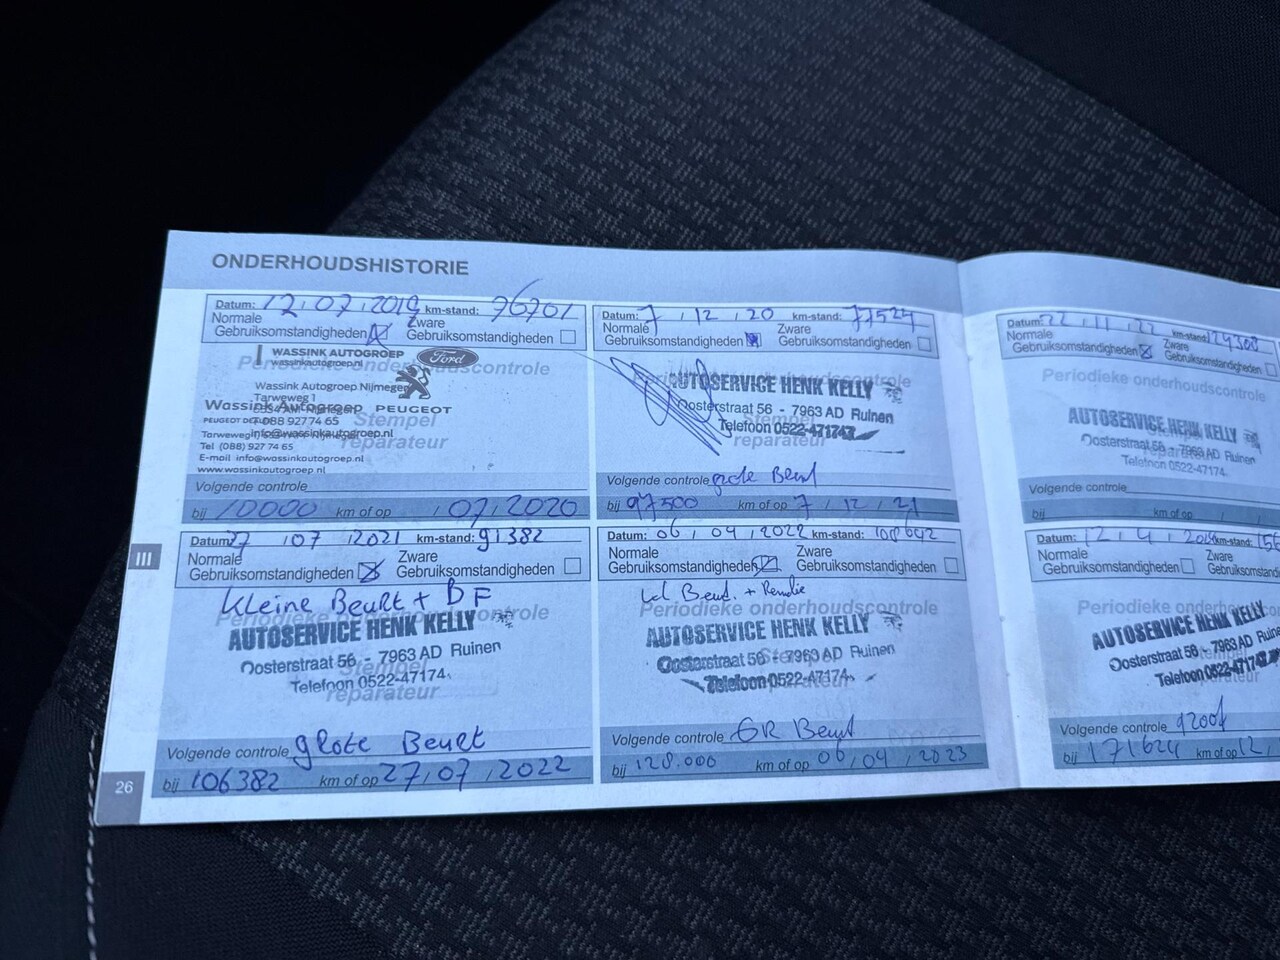 ONDERHOUDSHISTORIE
Datum: 12.07.2019 km-stand: 76701
Normale
Gebruiksomstandigheden
Zware
Gebruiksomstandigheden
Periodieke onderhoudscontrole
WASSINK AUTOGROEP
wassinkautogroep.nl
Ford
Wassink Autogroep Nijmegen
Tarweweg 1
Wassink Autogroep
PEUGEOT
088 92774 65
info@wassinkautogroep.nl
Tarweweg
Tel (088) 927 74 65
E-mail info@wassinkautogroep.nl
www.wassinkautogroep.nl
Stempel
reparateur
Volgende controle
bij 10000 km of op / 07 / 2020
Datum: 7 / 12 / 20 km-stand: 77524
Normale
Gebruiksomstandigheden
Zware
Gebruiksomstandigheden
AUTOSERVICE HENK KELLY
Oosterstraat 56 - 7963 AD Ruinen
Telefoon 0522-471747
reparateur
Volgende controle grote Beurt
bij 97500 km of op 7 / 12 / 21
Datum: 27 / 07 / 2021 km-stand: 91382
Normale
Gebruiksomstandigheden
Zware
Gebruiksomstandigheden
Kleine Beurt + BF
Periodieke onderhoudscontrole
AUTOSERVICE HENK KELLY
Oosterstraat 56 - 7963 AD Ruinen
Stempel
Telefoon 0522-47174
reparateur
Volgende controle grote Beurt
bij 106382 km of op 27 / 07 / 2022
Datum: 06 / 04 / 2022 km-stand: 108642
Normale
Gebruiksomstandigheden
Zware
Gebruiksomstandigheden
kl Beurt. +
Periodieke onderhoudscontrole
AUTOSERVICE HENK KELLY
Oosterstraat 56 - 7963 AD Ruinen
Stempel
Telefoon 0522-47174
reparateur
Volgende controle GR Beurt
bij 128.000 km of op 06 / 04 / 2023
Datum: 22 / 11 / 22 km-stand:
Normale
Gebruiksomstandigheden
Zware
Gebruiksomstandigheden
Periodieke onderhoudscontrole
AUTOSERVICE HENK KELLY
Oosterstraat 56 - 7963 AD Ruinen
Telefoon 0522-47174
reparateur
Volgende controle
bij km of op / /
Datum: 12.4. km-stand:
Normale
Gebruiksomstandigheden
Zware
Gebruiksomstandigheden
Periodieke onderhoudscontrole
AUTOSERVICE HENK KELLY
Oosterstraat 56 - 7963 AD Ruinen
Telefoon 0522-47174
reparateur
Volgende controle
bij 171624 km of op 12
III
26